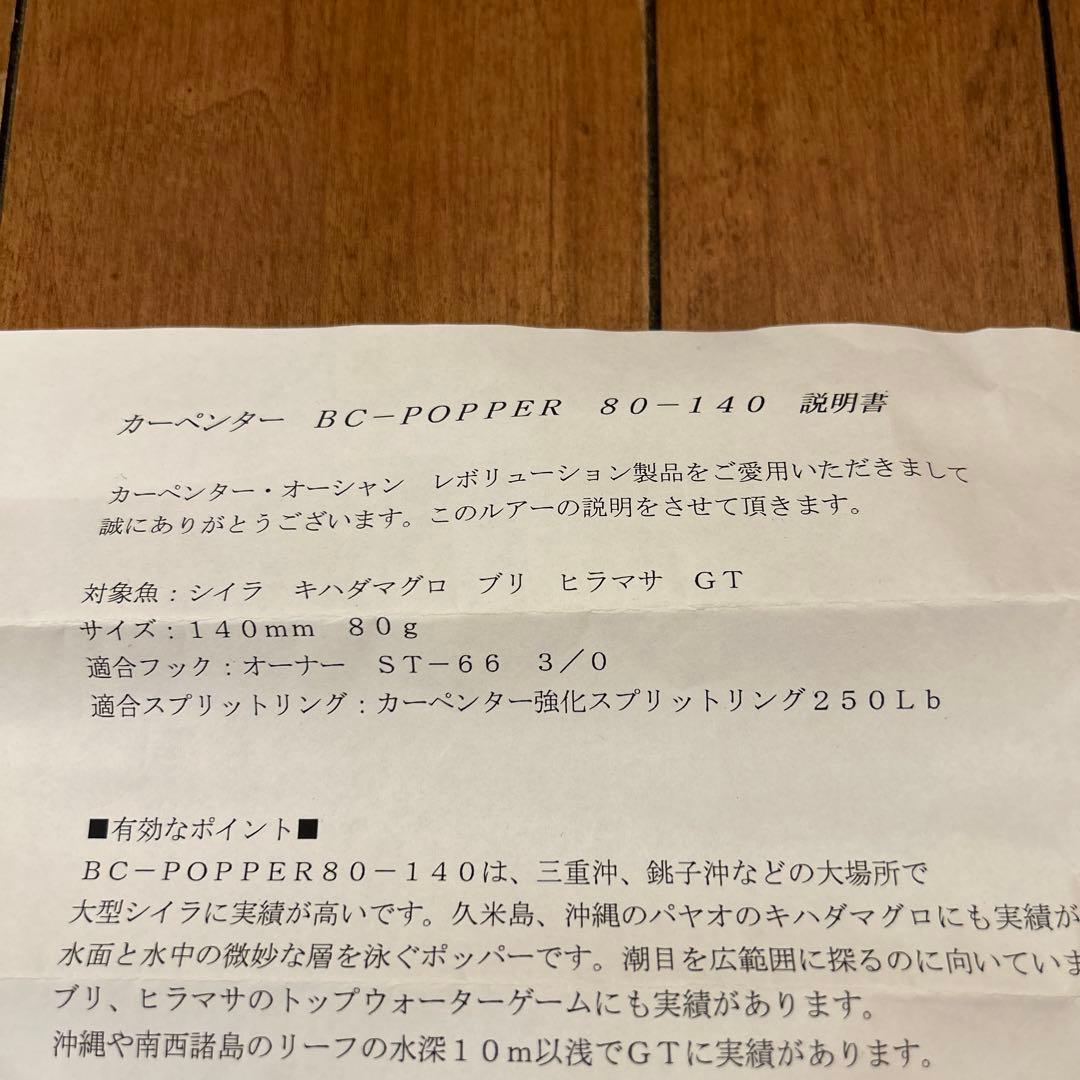 カーペンター　ＢＣ－ＰＯＰＰＥＲ　８０－１４０　説明書
カーペンター・オーシャン　レボリューション製品をご愛用いただきまして
誠にありがとうございます。このルアーの説明をさせて頂きます。
対象魚：シイラ　キハダマグロ　ブリ　ヒラマサ　ＧＴ
サイズ：１４０ｍｍ　８０ｇ
適合フック：オーナー　ＳＴ－６６　３／０
適合スプリットリング：カーペンター強化スプリットリング２５０Ｌｂ
■有効なポイント■
ＢＣ－ＰＯＰＰＥＲ８０－１４０は、三重沖、銚子沖などの大場所で
大型シイラに実績が高いです。久米島、沖縄のパヤオのキハダマグロにも実績が
水面と水中の微妙な層を泳ぐポッパーです。潮目を広範囲に探るのに向いていま
ブリ、ヒラマサのトップウォーターゲームにも実績があります。
沖縄や南西諸島のリーフの水深１０ｍ以浅でＧＴに実績があります。